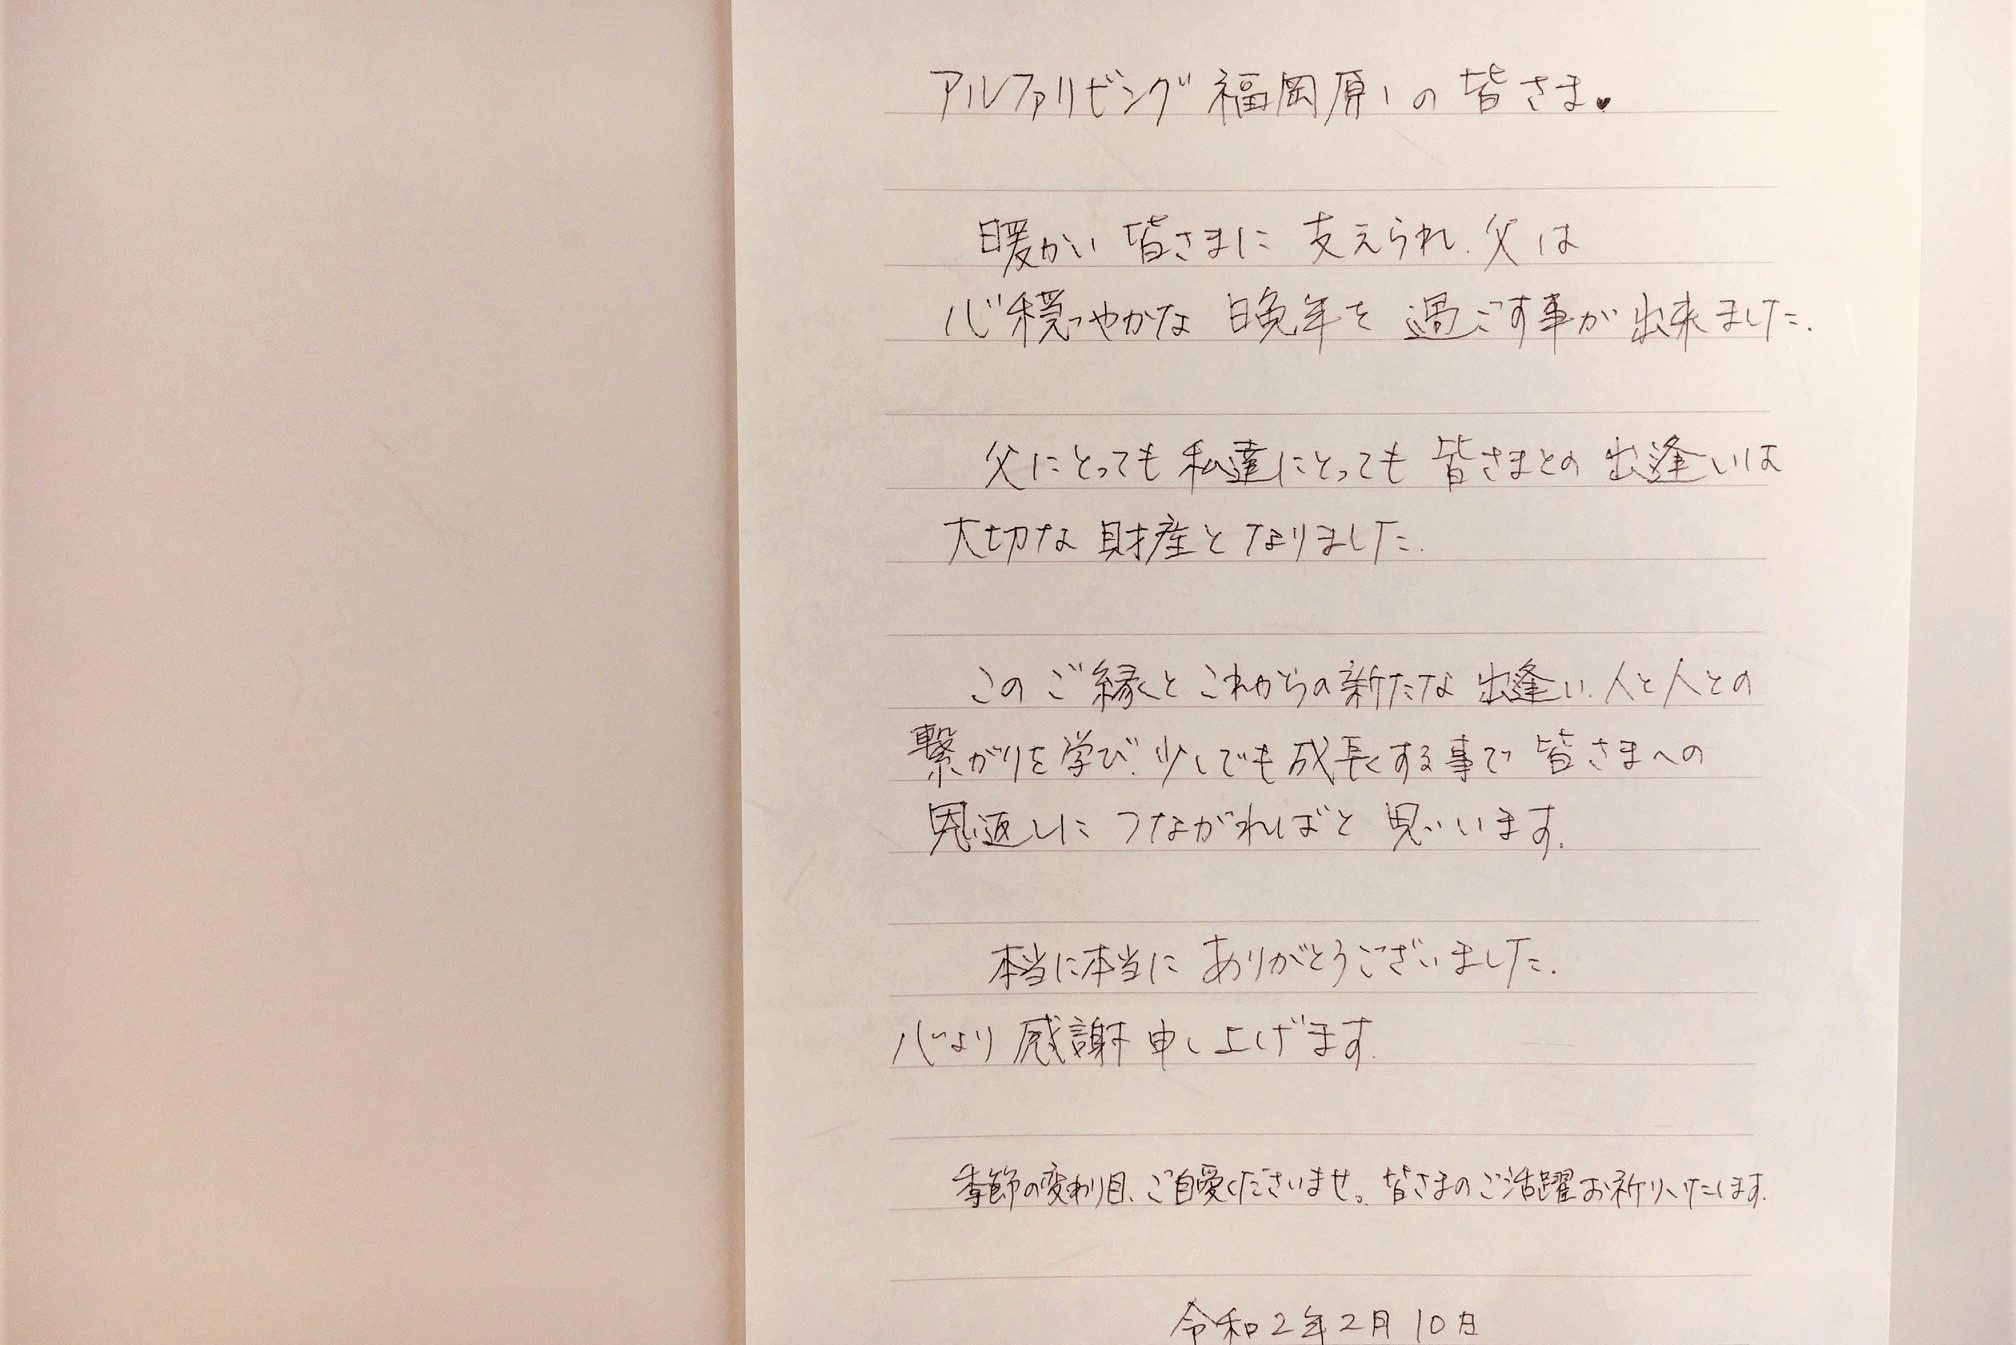 アルファリビング福岡原の皆さま♥
暖かい皆さまに支えられ、父は
心穏やかな晩年を過ごす事が出来ました。
父にとっても私達にとっても皆さまとの出逢いは
大切な財産となりました。
このご縁とこれからの新たな出逢い、人と人との
繋がりを学び、少しでも成長する事で皆さまへの
恩返しにつながればと思います。
本当に本当にありがとうございました。
心より感謝申し上げます。
季節の変わり目、ご自愛くださいませ。皆さまのご活躍お祈りいたします。
令和2年2月10日